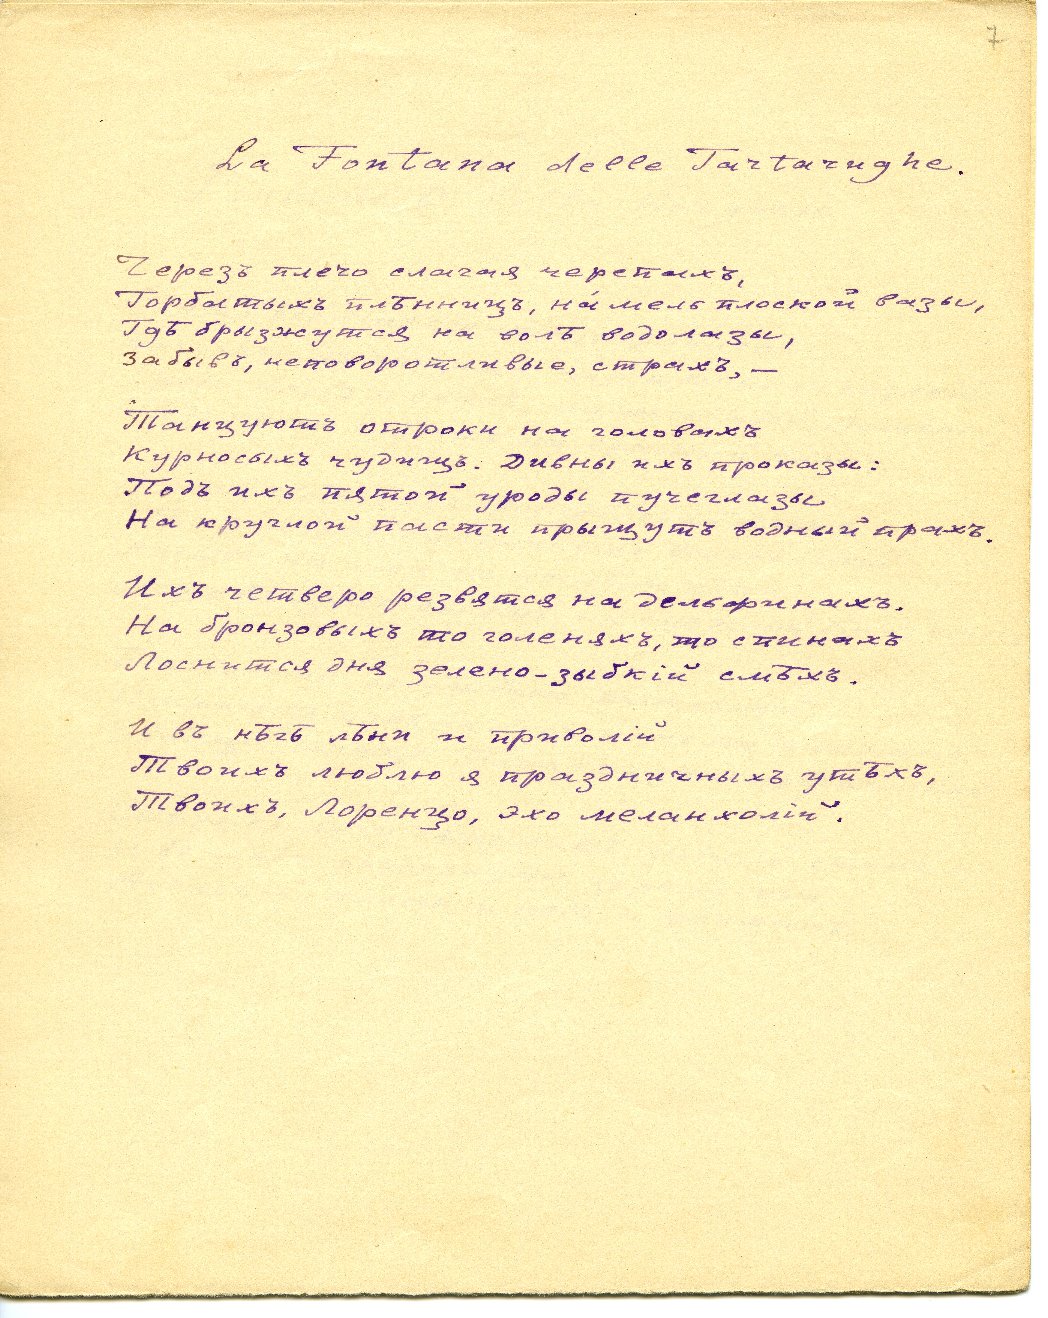 7
La Fontana delle Tartarughe.
Черезъ плечо слагая черепахъ,
Горбатыхъ плѣнницъ, на́ мель плоской вазы,
Гдѣ брызжутся на волѣ водолазы,
Забывъ, неповоротливые, страхъ, —
Танцуютъ отроки на головахъ
Курносыхъ чудищъ. Дивны ихъ проказы:
Подъ ихъ пятой уроды пучеглазы
На круглой пасти прыщутъ водный прахъ.
Ихъ четверо резвятся на дельфинахъ.
На бронзовыхъ то голеняхъ, то спинахъ
Лоснится дня зелено-зыбкій смѣхъ.
И въ нѣгѣ лѣни и приволій
Твоихъ люблю я праздничныхъ утѣхъ,
Твоихъ, Лоренцо, эхо меланхолій.